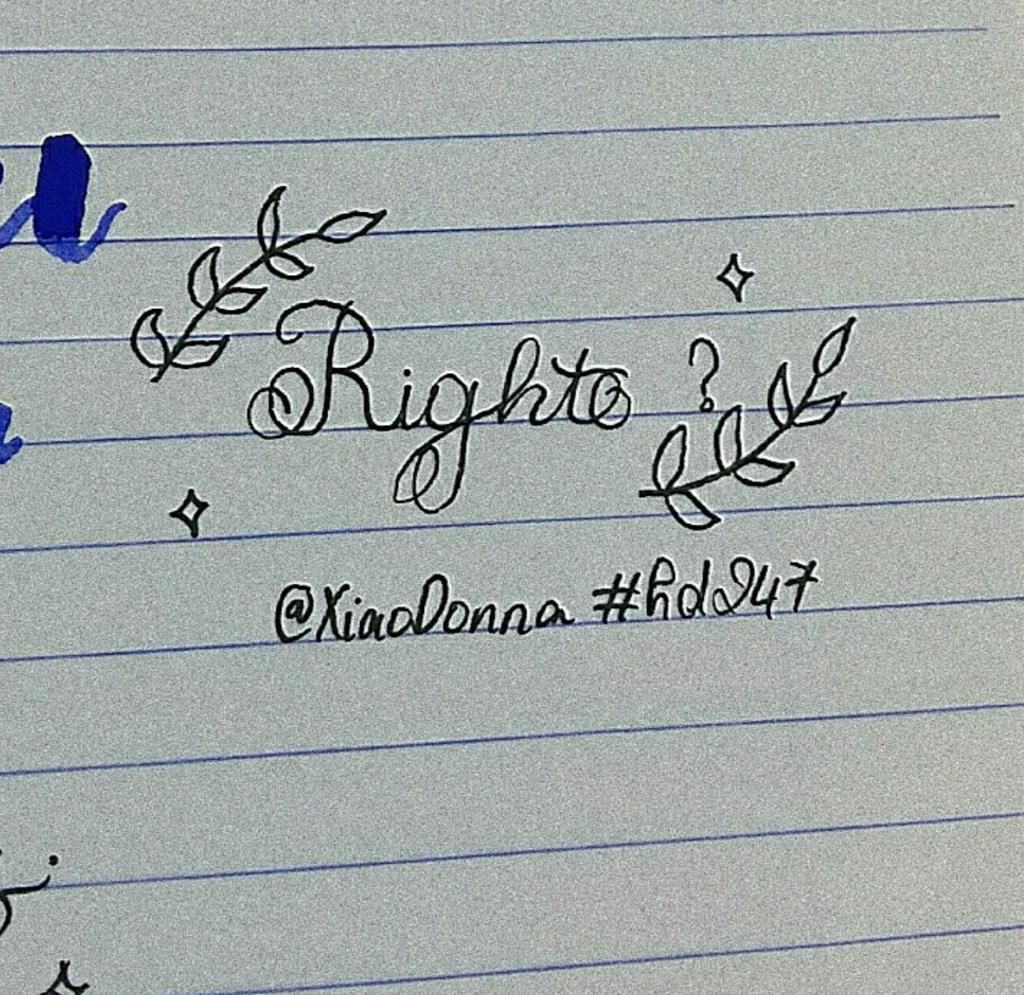 Righto ?
@XiaoDonna #hd247